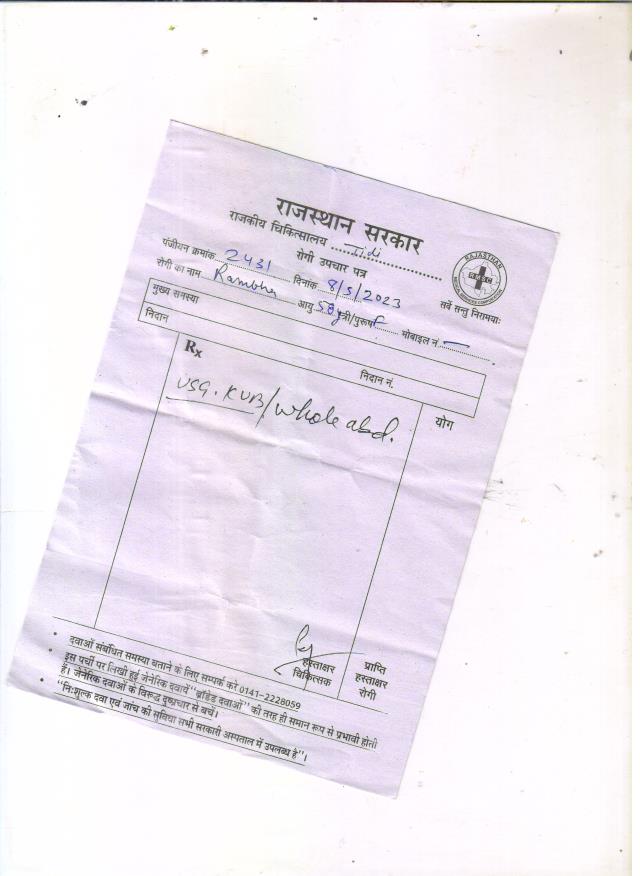 राजस्थान सरकार
राजकीय चिकित्सालय ..... Tidi .....
रोगी उपचार पत्र
RAJASTHAN
MEDICAL SERVICES CORPORATION
सर्वे सन्तु निरामयाः
पंजीयन क्रमांक 2431 दिनांक 8/5/2023
रोगी का नाम Rambha आयु 50y स्त्री/पुरूष F मोबाइल नं. —
मुख्य समस्या
निदान
निदान नं.
Rx
योग
USG. KUB/whole abd.
हस्ताक्षर
चिकित्सक
प्राप्ति
हस्ताक्षर
रोगी
• दवाओं संबंधित समस्या बताने के लिए सम्पर्क करे 0141-2228059
• इस पर्ची पर लिखी हुई जेनेरिक दवायें "ब्रांडेड दवाओं" की तरह ही समान रूप से प्रभावी होती
हैं। जेनेरिक दवाओं के विरूद्ध दुष्प्रचार से बचें।
• "निःशुल्क दवा एवं जांच की सुविधा सभी सरकारी अस्पताल में उपलब्ध है"।